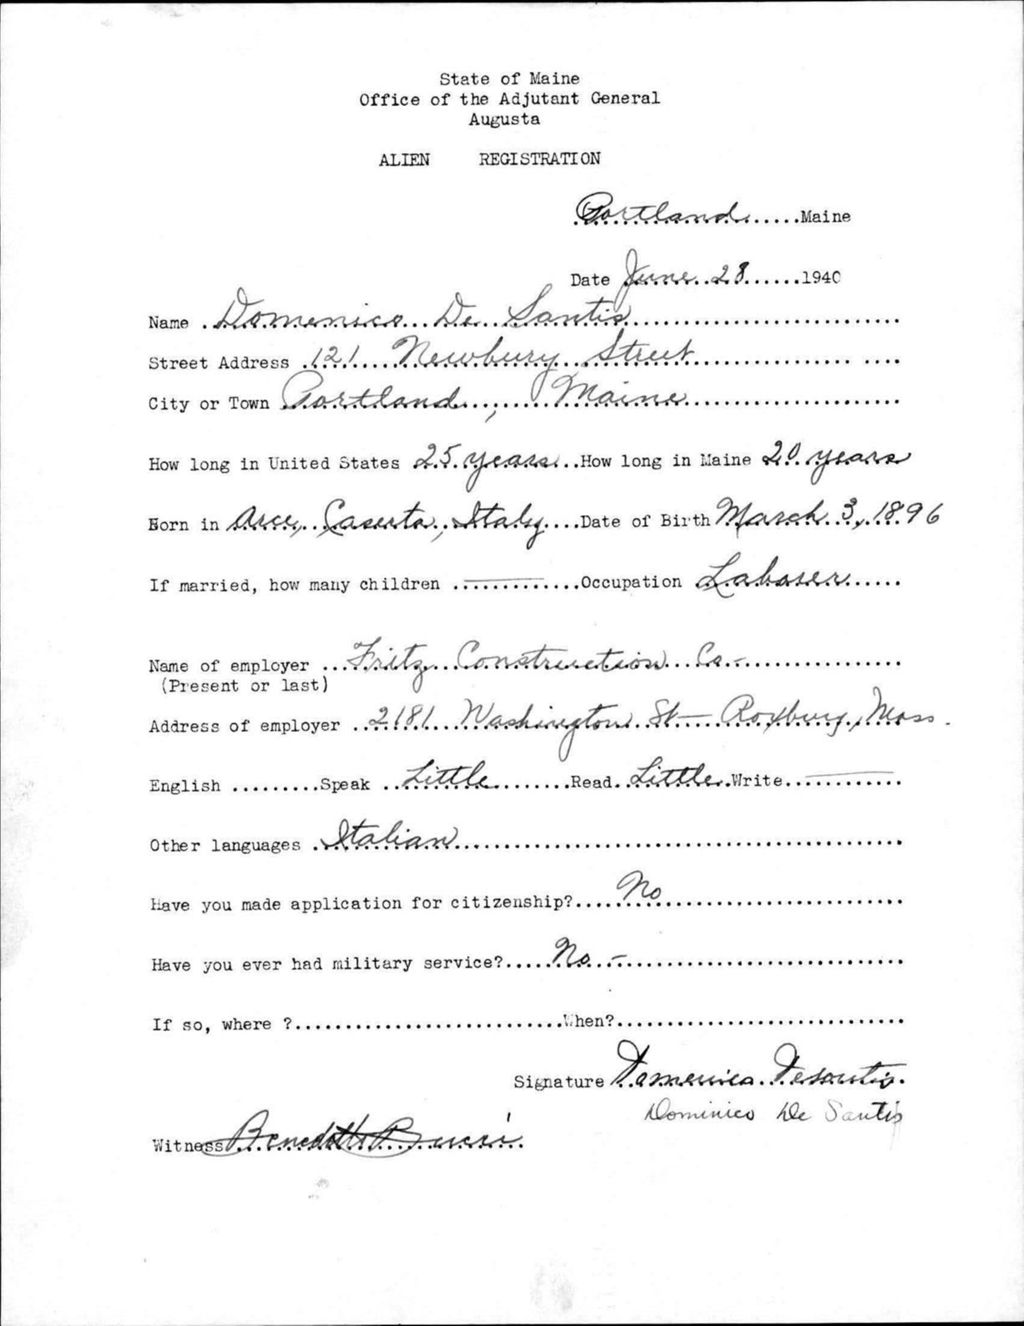 State of Maine
Office of the Adjutant General
Augusta
ALIEN REGISTRATION
Portland Maine
Date June 28 1940
Name Domenico De Santis
Street Address 121 Newbury Street
City or Town Portland, Maine
How long in United States 25 years How long in Maine 20 years
Born in Arce, Caserta, Italy Date of Birth March 3, 1896
If married, how many children — Occupation Laborer
Name of employer Fritz Construction Co.-
(Present or last)
Address of employer 2181 Washington St — Roxbury, Mass.
English Speak Little Read Little Write —
Other languages Italian
Have you made application for citizenship? No
Have you ever had military service? No -
If so, where ? When?
Signature Domenico Desantis.
Dominico De Santis
Witness Benedetto